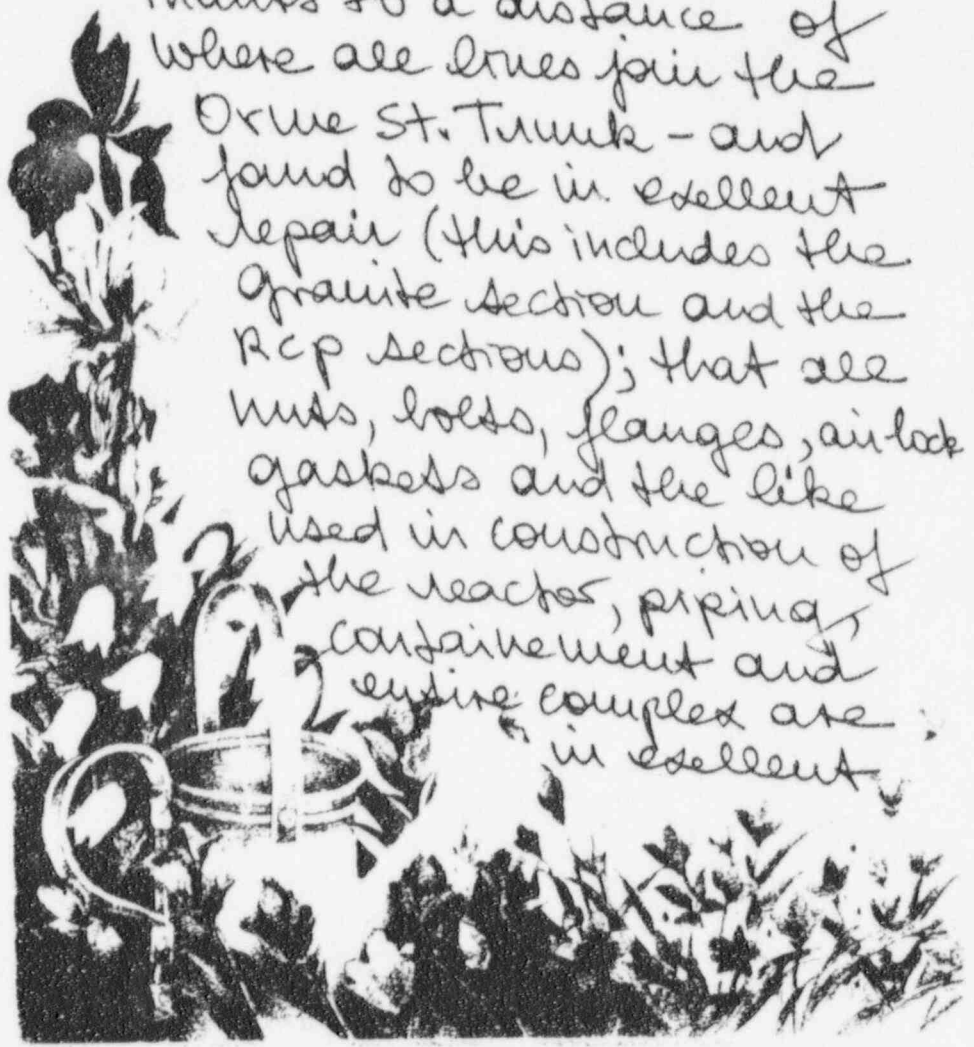 to a distance of
where all lines join the
Orme St. Trunk – and
found to be in exellent
repair (this includes the
granite section and the
RCP sections); that all
nuts, bolts, flanges, airlock
gaskets and the like
used in construction of
the reactor, piping,
containement and
entire complex are
in exellent